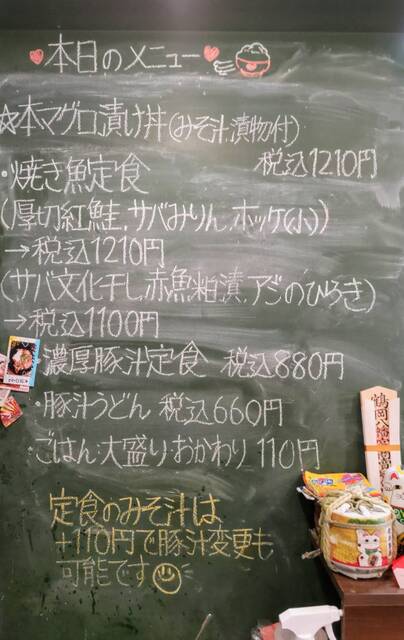 本日のメニュー
☆本マグロ漬け丼(みそ汁,漬物付)
税込1210円
・焼き魚定食
(厚切紅鮭,サバみりん,ホッケ(小))
→税込1210円
(サバ文化干し,赤魚粕漬,アジのひらき)
→税込1100円
・濃厚豚汁定食 税込880円
・豚汁うどん 税込660円
・ごはん・大盛り・おかわり 110円
定食のみそ汁は
+110円で豚汁変更も
可能です
鶴岡八幡宮